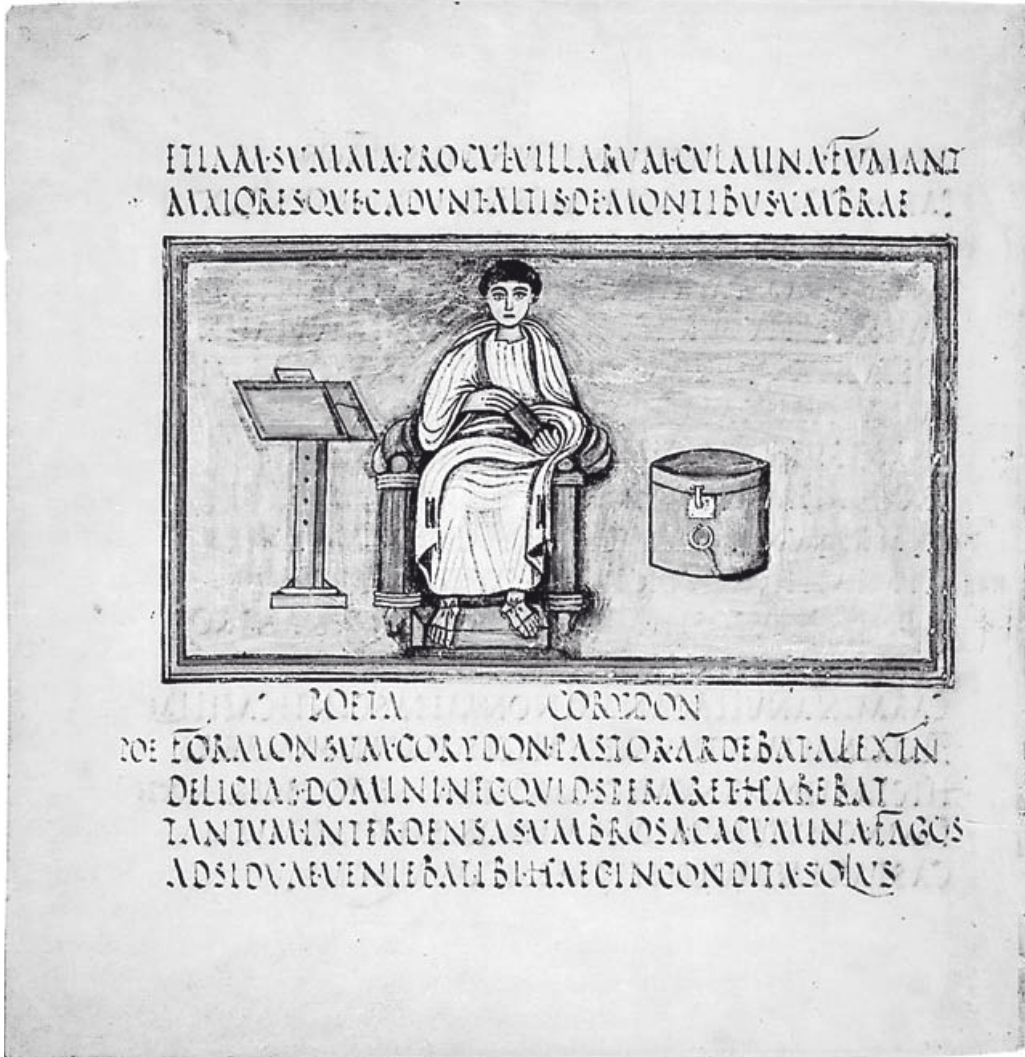 ETIAM·SUMMA·PROCUL·VILLARUM·CULMINA·FUMANT
MAIORESQUE·CADUNT·ALTIS·DE·MONTIBUS·UMBRAE
POETA CORYDON
POE FORMONSUM·CORYDON·PASTOR·ARDEBAT·ALEXIN
DELICIAS·DOMINI·NEC·QUID·SPERARET·HABEBAT
TANTUM·INTER·DENSAS·UMBROSA·CACUMINA·FAGOS
ADSIDUAE·VENIEBAT·IBI·HAEC·INCONDITA·SOLUS